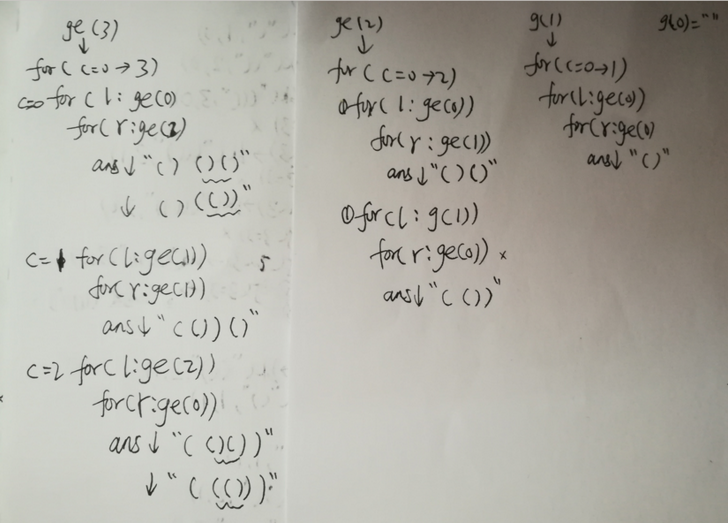 ge(3)
↓
for( c=0→3)
c=0 for( l: ge(0)
for(r:ge(2)
ans↓"() ()()"
↓ () (())"
c=1 for(l:ge(1))
for(r:ge(1))
ans↓"(())()"
c=2 for(l:ge(2))
for(r:ge(0))
ans↓"( ()())"
↓"( (()))"
5
ge(2)
↓
for( c=0→2)
①for( l: ge(0))
for(r: ge(1))
ans↓"()()"
①for(l: g(1))
for(r:ge(0)) ×
ans↓"( ())"
g(1)
↓
for(c=0→1)
for(l:ge(0))
for(r:ge(0)
ans↓"()"
g(0)=""